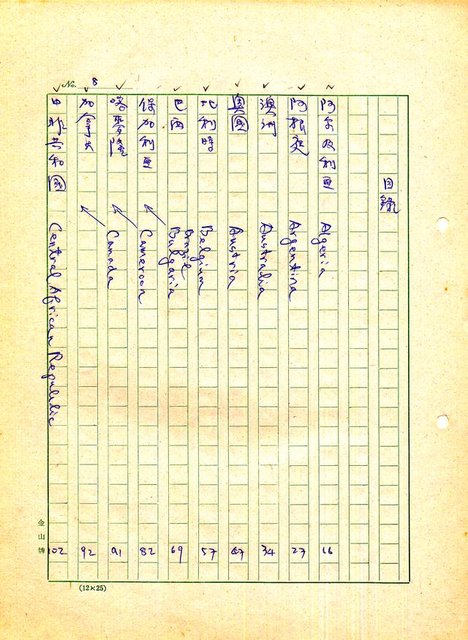 No. 8
目錄
阿尔及利亚 Algeria 16
阿根廷 Argentina 27
澳洲 Australia 34
奧國 Austria 47
比利時 Belgium 57
巴西 Brazil 69
保加利亚 Bulgaria 82
喀麥隆 Cameroon 91
加拿大 Canada 92
中非共和國 Central African Republic 102
金山牌
(12×25)